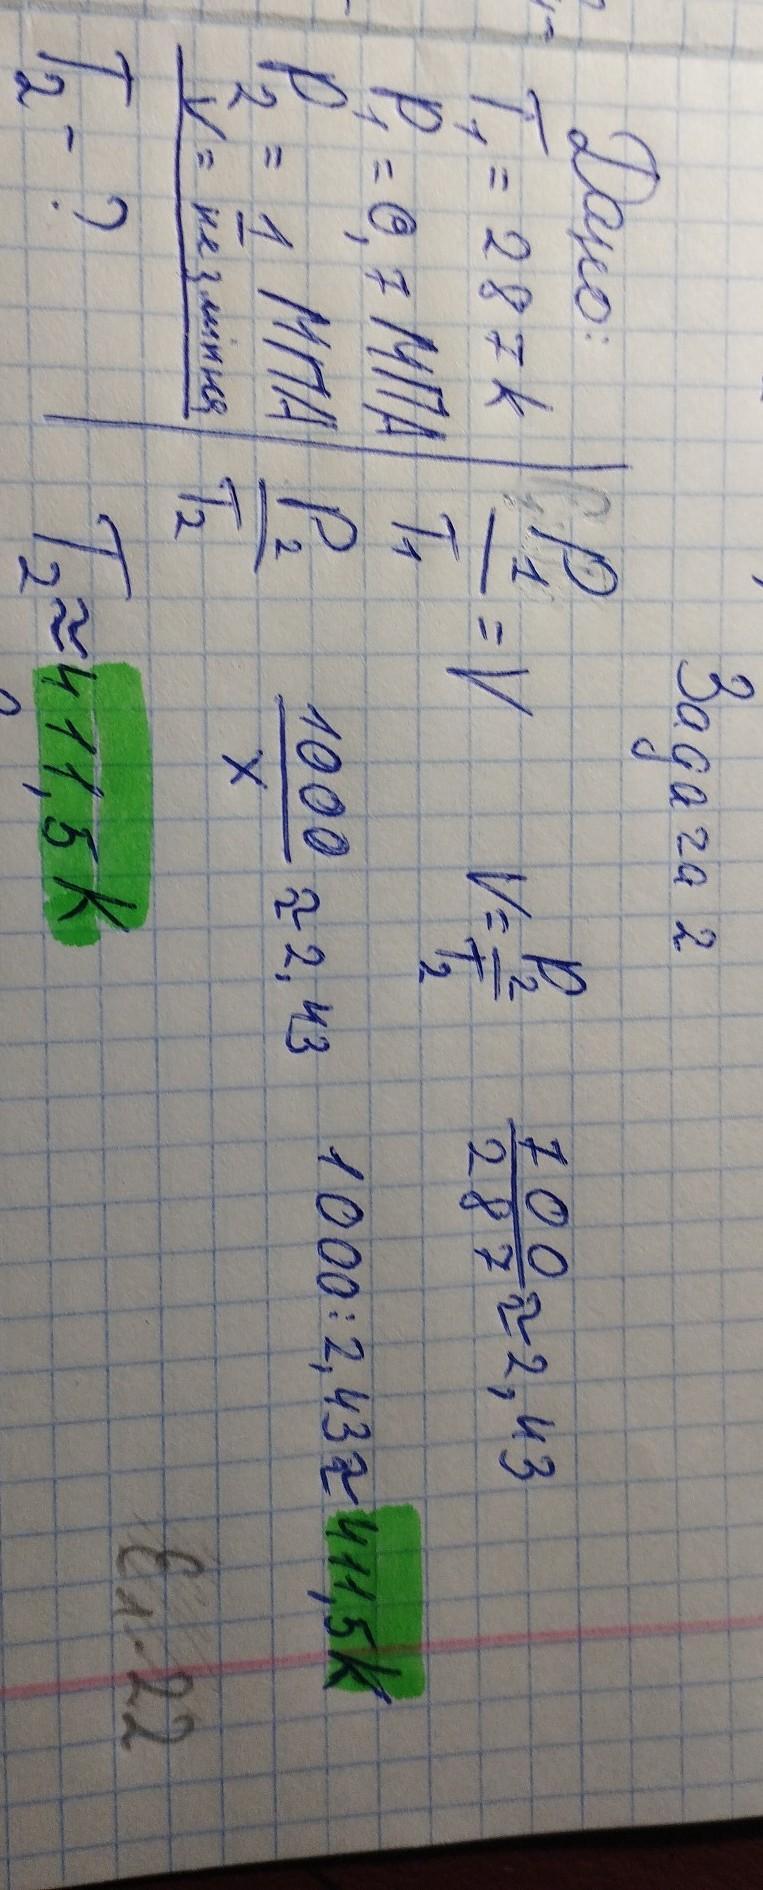 Задача 2
Дано:
T₁ = 287 K
P₁ = 0,7 МПА
P₂ = 1 МПА
V = незмінна
T₂ - ?
P₁/T₁ = V
V = P₂/T₂
700/287 ≈ 2,43
P₂/T₂
1000/x ≈ 2,43
1000 : 2,43 ≈ 411,5 K
T₂ ≈ 411,5 K